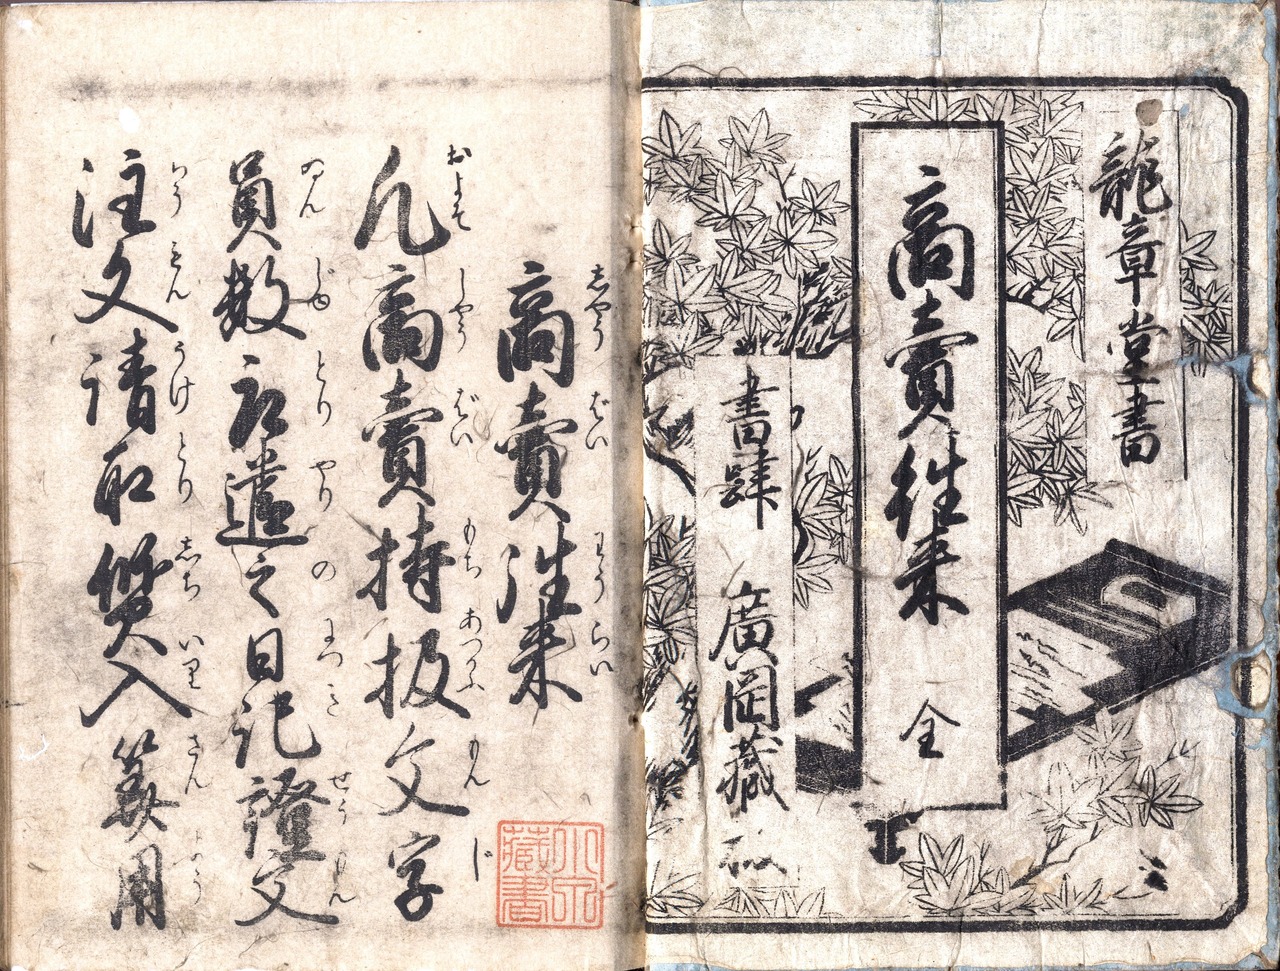 龍章堂書
商賣往来 全
書肆 廣岡藏
商賣往来
しやう ばい わう らい
凡商賣持扱文字
およそ しやう ばい もち あつかふ もん じ
員数取遣之日記證文
ゐん じゆ とり やり の につ き せう もん
注文請取質入算用
ちう もん うけ とり しち いり さん よう
藏書